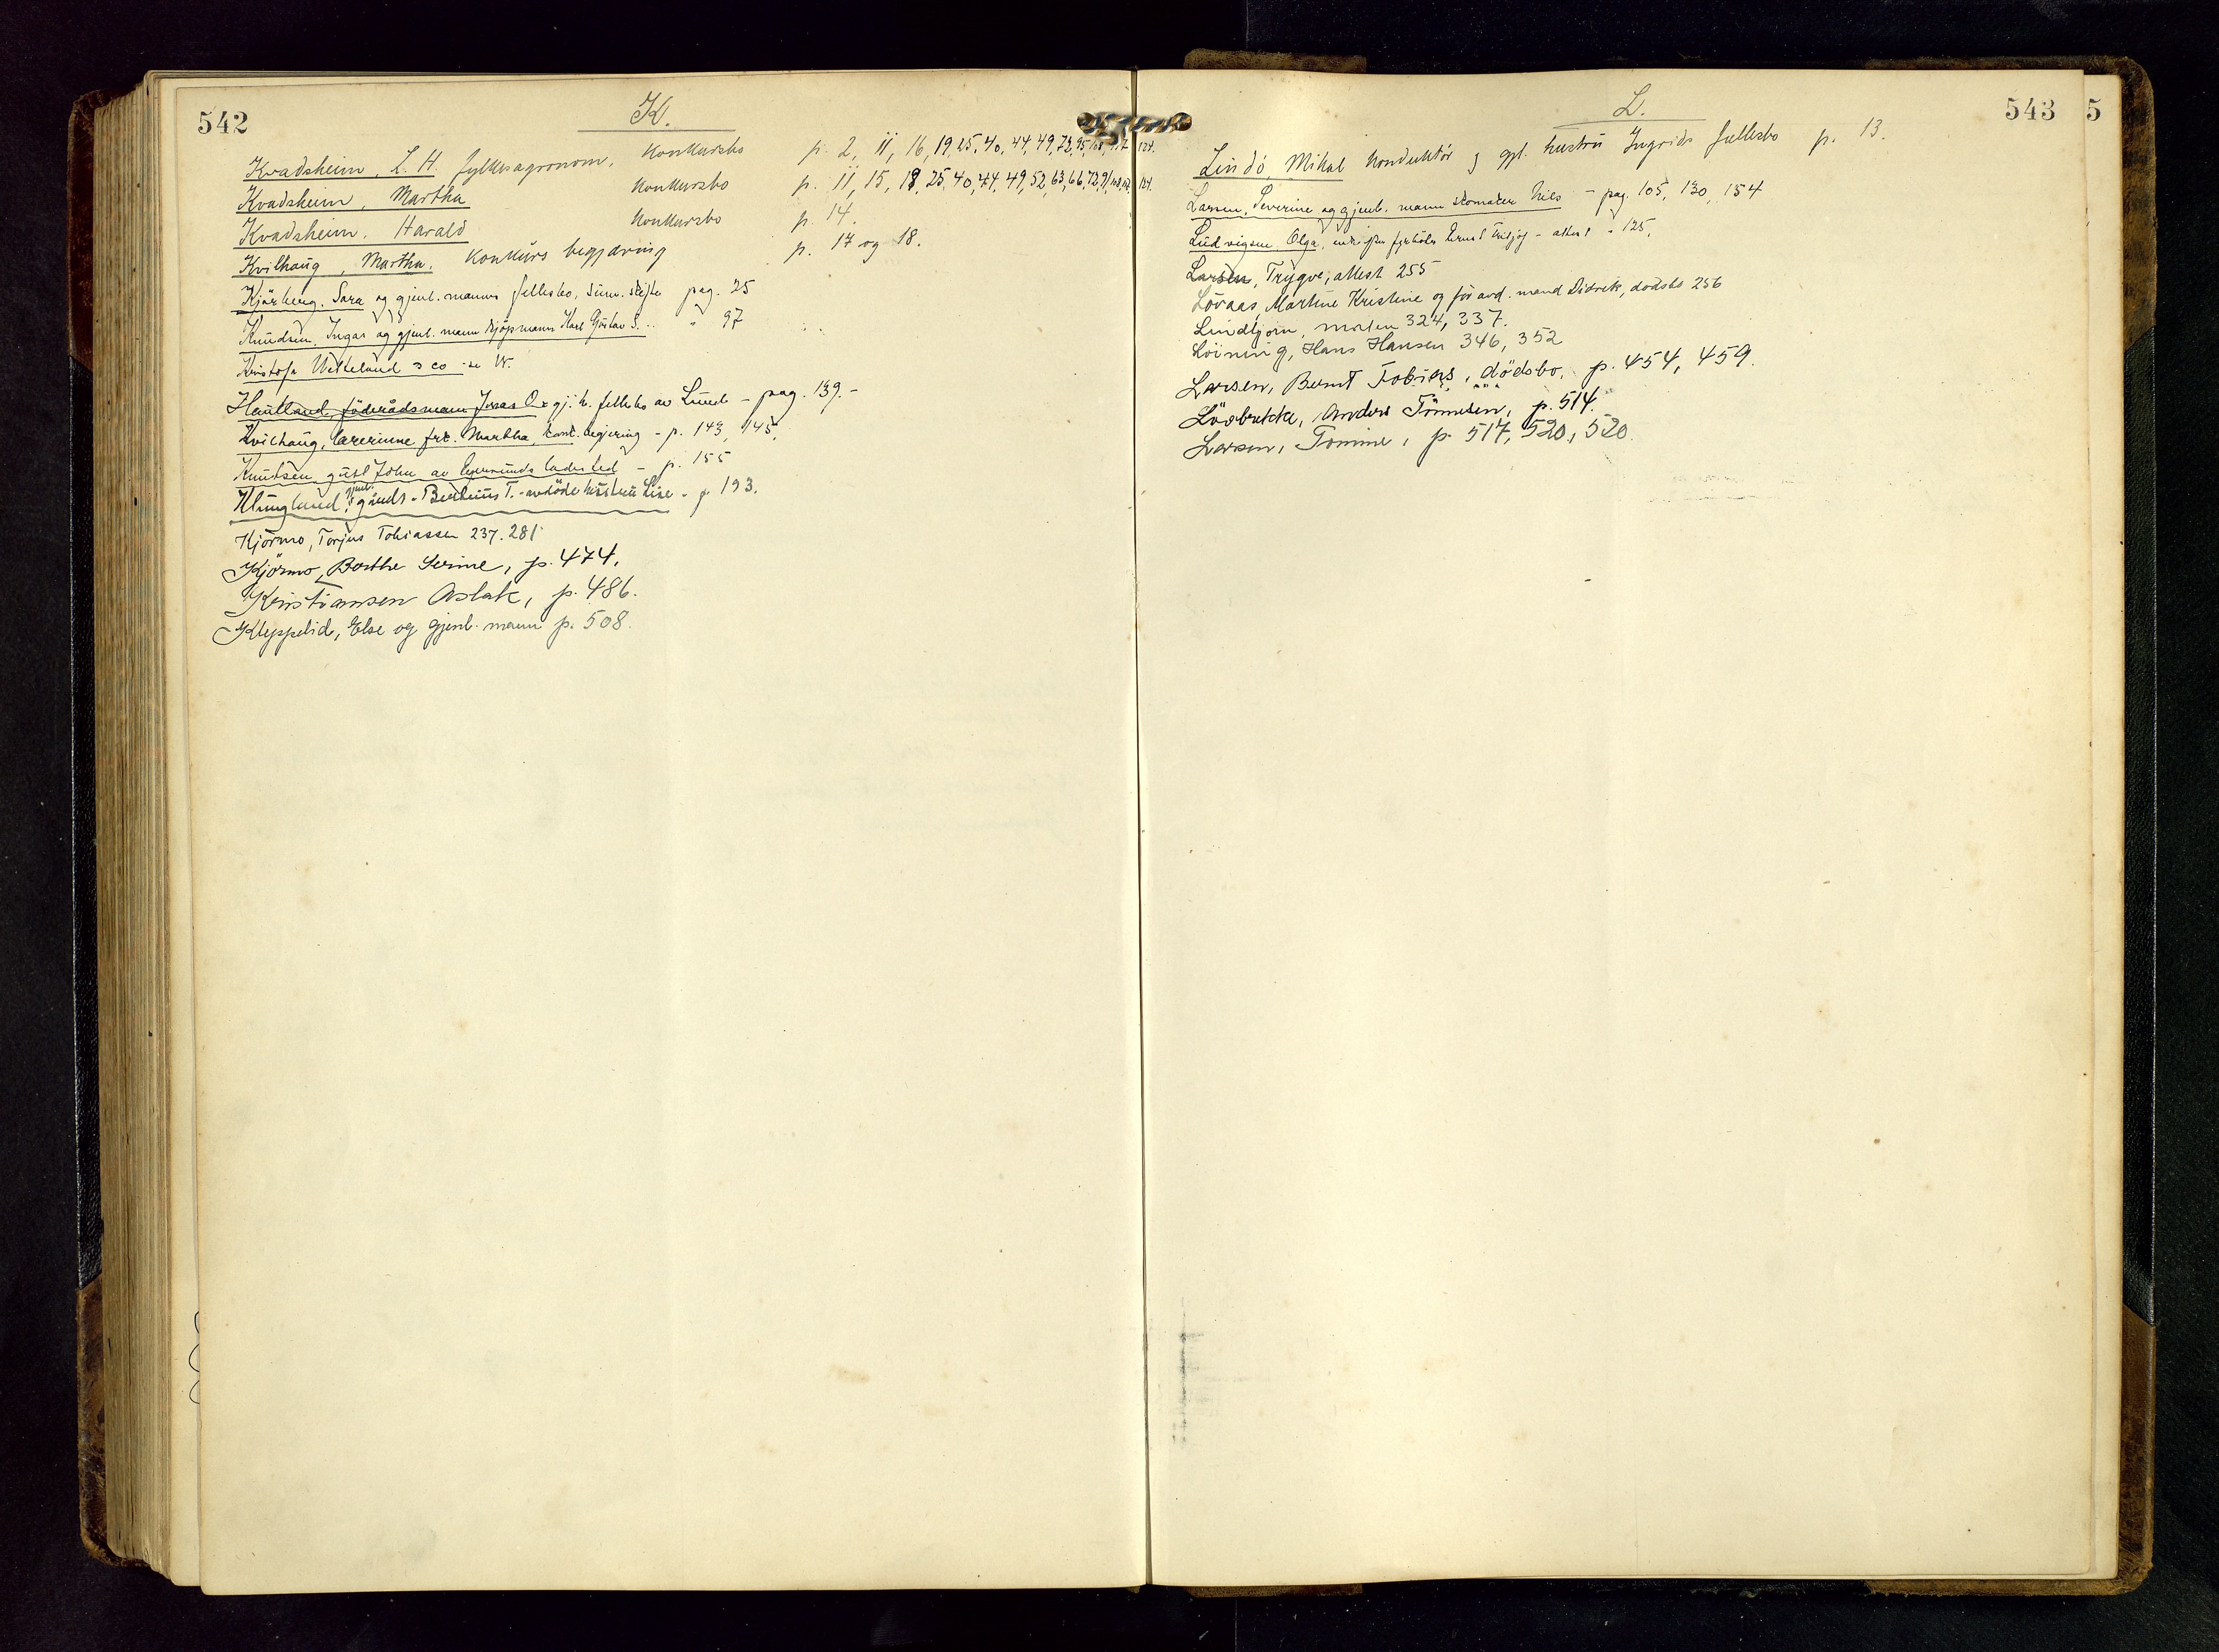 542
K.
Kvadsheim, L. H. fylkesagronom, konkursbo p. 2, 11, 16, 19, 25, 40, 44, 49, 72, 95, 108, 117, 124.
Kvadsheim, Martha konkursbo p. 11, 15, 18, 25, 40, 44, 49, 52, 63, 66, 72, 91, 124.
Kvadsheim, Harald konkursbo p. 14.
Kvilhaug, Martha, konkurs begjæring p. 17 og 18.
Kjörberg, Sara og gjenl. manns fellesbo, sum. skifte pag. 25
Knudsen, Ingar og gjenl. mann kjöpmann Karl Gustav S... " 97
Kristofa Velteland & co se W.
Hautland, föderådsmann Jonas O. & gj. h. fellesbo av Lund - pag. 139.-
Kvilhaug, lærerinne frk. Martha, konk. begjæring - p. 143, 145,
Knutsen, gutt John av Egersunds ladested - p. 155
Klungland, gjenl. gårdb. Bertinius T. - avdöde hustru Lise - p. 193.
Kjörmo, Torjus Tobiassen 237. 281
Kjörmo, Berthe Serine, p. 474,
Kristiansen Aslak, p. 486.
Kleppelid, Else og gjenl. mann p. 508.
543
L.
Lindö, Mikal konduktör og gjl. hustru Ingrids fellesbo p. 13.
Larsen, Severine og gjenl. mann skomaker Nils - pag. 105, 130, 154
Ludvigsen, Olga, fyrböter Bernt Fridjof - attest " 125,
Larsen, Trygve, attest 255
Lövaas, Martine Kristine og för avd. mand Didrik, dodsbo 256
Lindtjörn, Malen 324, 337.
Löining, Hans Hansen 346, 352
Larsen, Bernt Tobias, dödsbo, p. 454, 459.
Lövbrekke, Anders Tönnesen, p. 514.
Larsen, Tomine, p. 517, 520, 520.
5